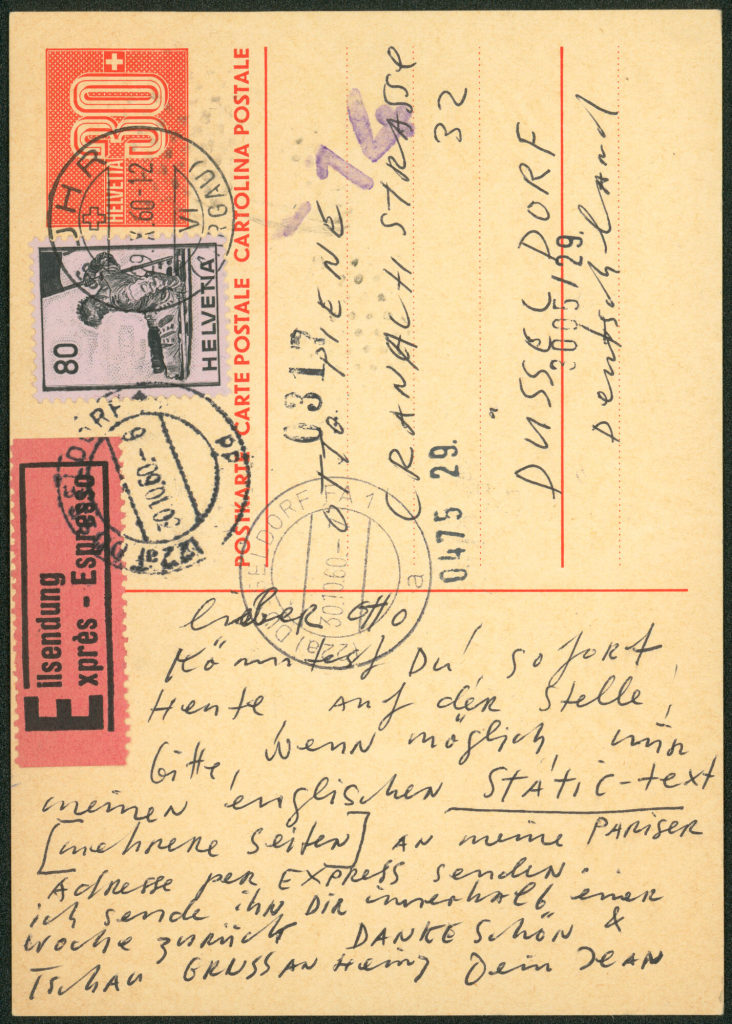 30
HELVETIA
POSTKARTE CARTE POSTALE CARTOLINA POSTALE
80
HELVETIA
Eilsendung
Exprès - Espresso
(22a) DÜSSELDORF
30.10.60.-6
(22a) DÜSSELDORF
30.10.60.-
a
0317
0475 29.
3095/29.
OTTO PIENE
CRANACHSTRASSE
32
DÜSSELDORF
Deutschland
Lieber Otto
Könntest Du sofort,
Heute auf der Stelle,
bitte, wenn möglich, mir
meinen englischen STATIC-text
[mehrere Seiten] an meine PARISER
Adresse per EXPRESS senden.
ich sende ihn DIR innerhalb einer
woche zurück DANKE SCHÖN &
Tschau GRUSS AN Heinz Dein JEAN